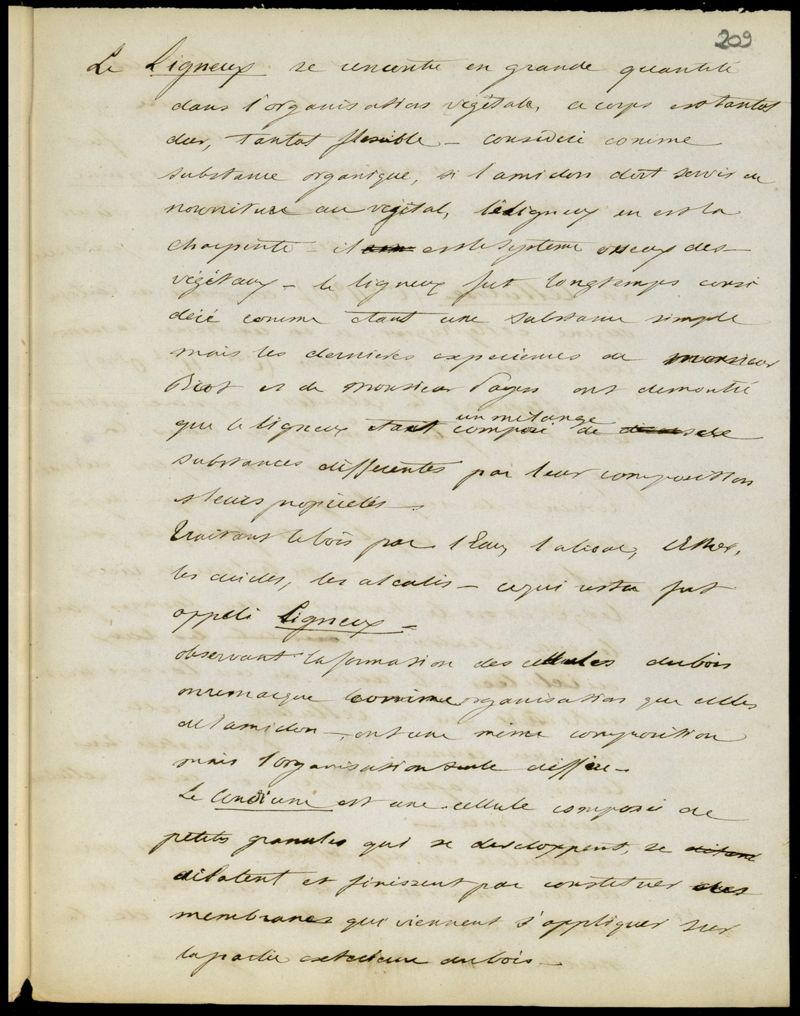 209
Le Ligneux se rencontre en grande quantité
dans l'organisation végétale, ce corps est tantot
dur, tantot flexible – considéré comme
substance organique, si l'amidon doit servir de
nourriture au végétal, le ligneux en est la
charpente – il est le systeme osseux des
végétaux – le ligneux fut longtemps consi
déré comme etant une substance simple
mais les dernieres experiences de monsieur
Biot et de monsieur Payen ont demontré
un mélange
que le ligneux etait composé de
substances differentes par leur composition
et leurs propriétés.
Traitant le bois par l'Eau, l'alcool, l'Ether,
les acides, les alcalis – ce qui resta fut
appelé Ligneux –
observant la formation des cellules du bois
on remarque la même organisation que celles
de l'amidon –, ont une même composition
mais l'organisation seule differe –
Le est une cellule composée de
petits granules qui se developpent, se
dilatent et finissent par constituer des
membranes qui viennent s'appliquer sur
la partie exterieure du bois –